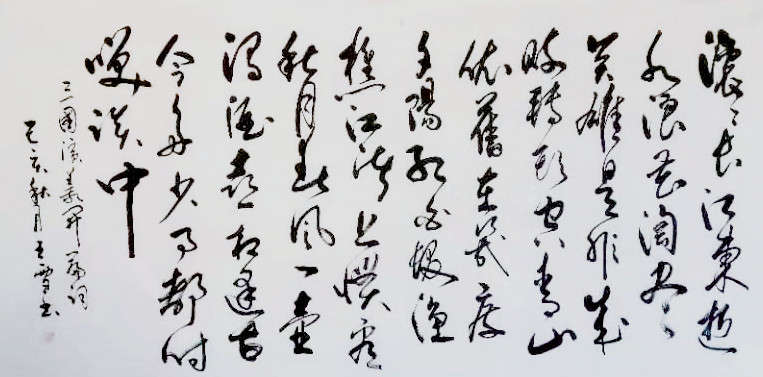 滚〻长江東逝
水浪花淘尽
英雄是非成
败轉头空青山
依舊在幾度
夕陽红白发渔
樵江渚上惯看
秋月春风一壶
浊酒喜相逢古
今多少事都付
笑谈中
三國演義开篇词
己亥秋月王雪书